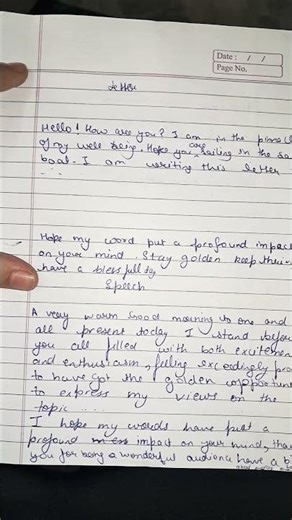 Date: / /
Page No.
Letter
Hello! How are you? I am in the pinnacl
of my well being. Hope you are sailing in the sa
boat. I am writing this letter
...
Hope my word put a profound impact
on your mind. Stay golden keep thriv-
have a blessful day
Speech
A very warm Good morning to one and
all present today I stand before
you all filled with both excitemen
and enthusiasm, feeling exceedingly pro
to have got the golden opportun
to express my views on the
topic ...
I hope my words have put a
profound impact on your mind, than
you for being a wonderful audience have a b